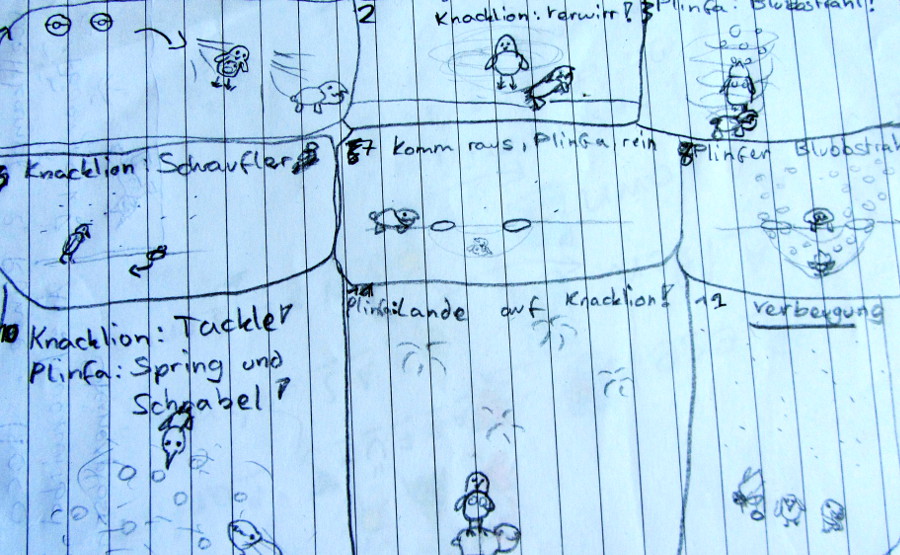 2
Knacklion: verwirr!
3
Plinfa: Blubbstrahl!
Knacklion: Schaufler
7 Komm raus, Plinfa, rein
Plinfer Blubbstrahl
10 Knacklion: Tackle!
Plinfa: Spring und
Schnabel!
Plinfa: Lande auf Knacklion!
11 Verbeugung